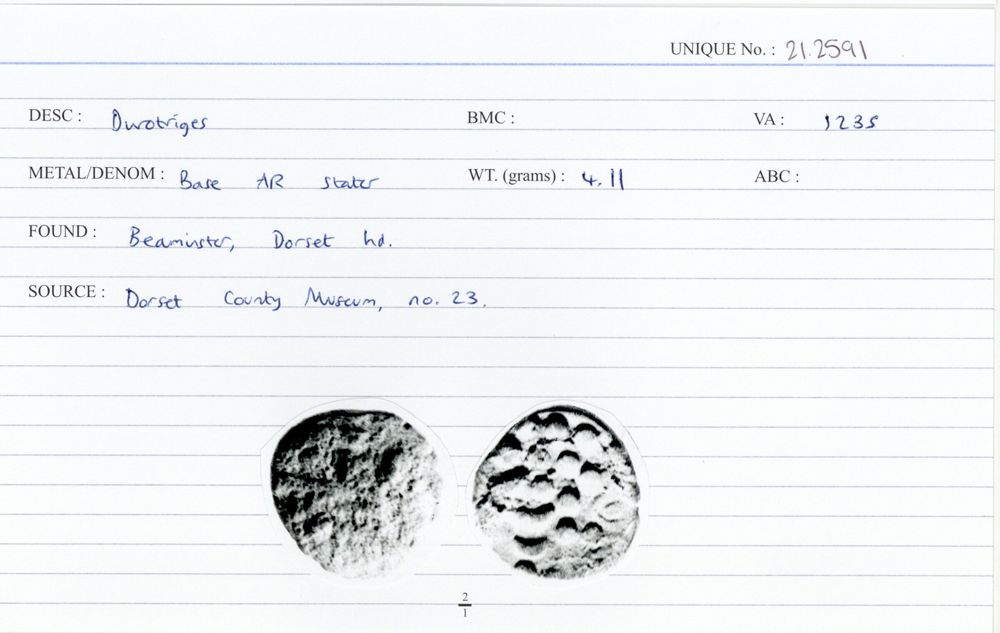 UNIQUE No. : 21.2591
DESC : Durotriges BMC : VA : 1235
METAL/DENOM : Base AR stater WT. (grams) : 4.11 ABC :
FOUND : Beaminster, Dorset hd.
SOURCE : Dorset County Museum, no. 23.
2
1